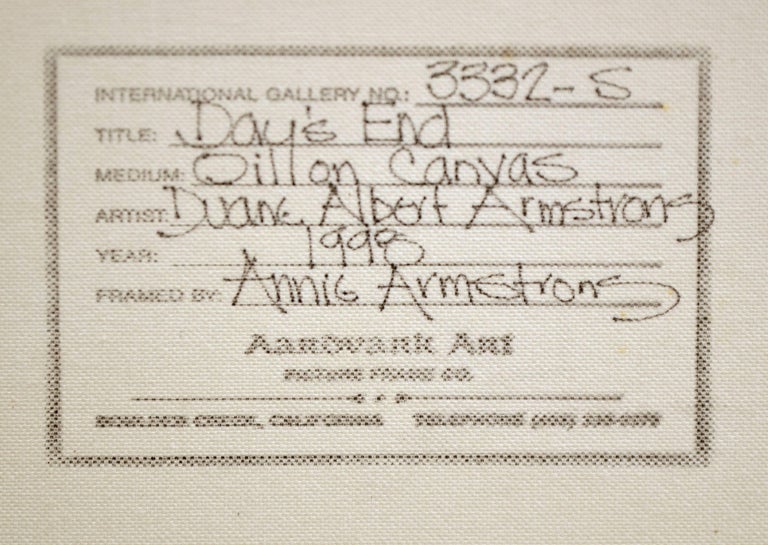 INTERNATIONAL GALLERY NO.: 3332-S
TITLE: Day's End
MEDIUM: Oil on Canvas
ARTIST: Duane Albert Armstrong
YEAR: 1998
FRAMED BY: Annie Armstrong
Aardvark Art
PICTURE FRAME CO.
BOULDER CREEK, CALIFORNIA TELEPHONE (408)